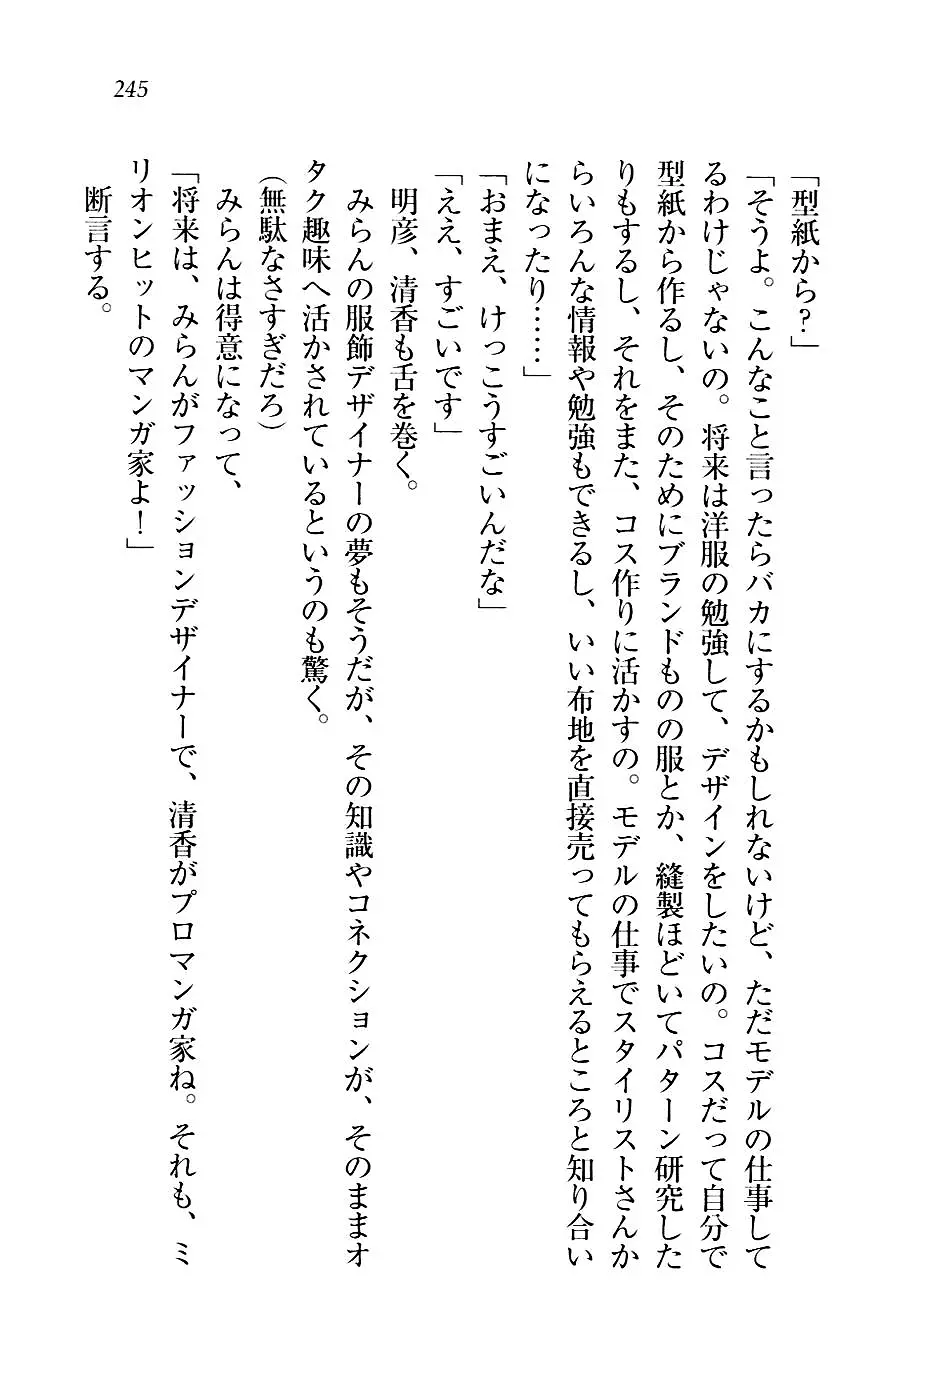 245
「型紙から？」
「そうよ。こんなこと言ったらバカにするかもしれないけど、ただモデルの仕事して
るわけじゃないの。将来は洋服の勉強して、デザインをしたいの。コスだって自分で
型紙から作るし、そのためにブランドものの服とか、縫製ほどいてパターン研究した
りもするし、それをまた、コス作りに活かすの。モデルの仕事でスタイリストさんか
らいろんな情報や勉強もできるし、いい布地を直接売ってもらえるところと知り合い
になったり……」
「おまえ、けっこうすごいんだな」
「ええ、すごいです」
明彦、清香も舌を巻く。
みらんの服飾デザイナーの夢もそうだが、その知識やコネクションが、そのままオ
タク趣味へ活かされているというのも驚く。
（無駄なさすぎだろ）
みらんは得意になって、
「将来は、みらんがファッションデザイナーで、清香がプロマンガ家ね。それも、ミ
リオンヒットのマンガ家よ！」
断言する。